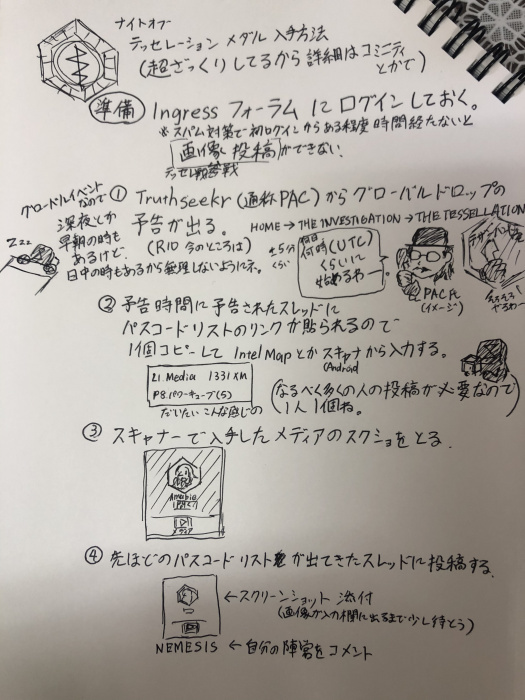 ナイトオブ
テッセレーション メダル 入手方法
(超ざっくりしてるから 詳細はコミニティ
とかで)
準備 Ingress フォーラム にログインしておく。
※スパム対策で初ログインからある程度 時間経たないと
画像 投稿 ができない.
テッセレ
グローバルイベント
なので
深夜とか
早朝の時も
あるけど、
日中の時もあるから無理しないようにネ。
zzz
① Truthseekr (通称PAC) からグローバルドロップの
予告が出る。 HOME → THE INVESTIGATION → THE TESSELLATION
(R10 今のところは)
±5分
くらい
何日
何時(UTC)
くらいに
始めるわー。
PAC氏
(イメージ)
そろそろ
やるわー
② 予告時間に予告されたスレッドに
パスコードリストのリンクが貼られるので
1個コピーして Intel Map とか スキャナ から入力する。
(Android)
L1. Media 1331XM
P8.パワーキューブ(5)
だいたい こんな感じの
(なるべく多くの人の投稿が必要なので
1人1個ね。)
③ スキャナーで入手したメディアのスクショをとる.
メディア
④ 先ほどのパスコードリストが出てきたスレッドに投稿する.
←スクリーンショット 添付
(画像が入力欄に出るまで少し待とう)
NEMESIS ← 自分の陣営をコメント